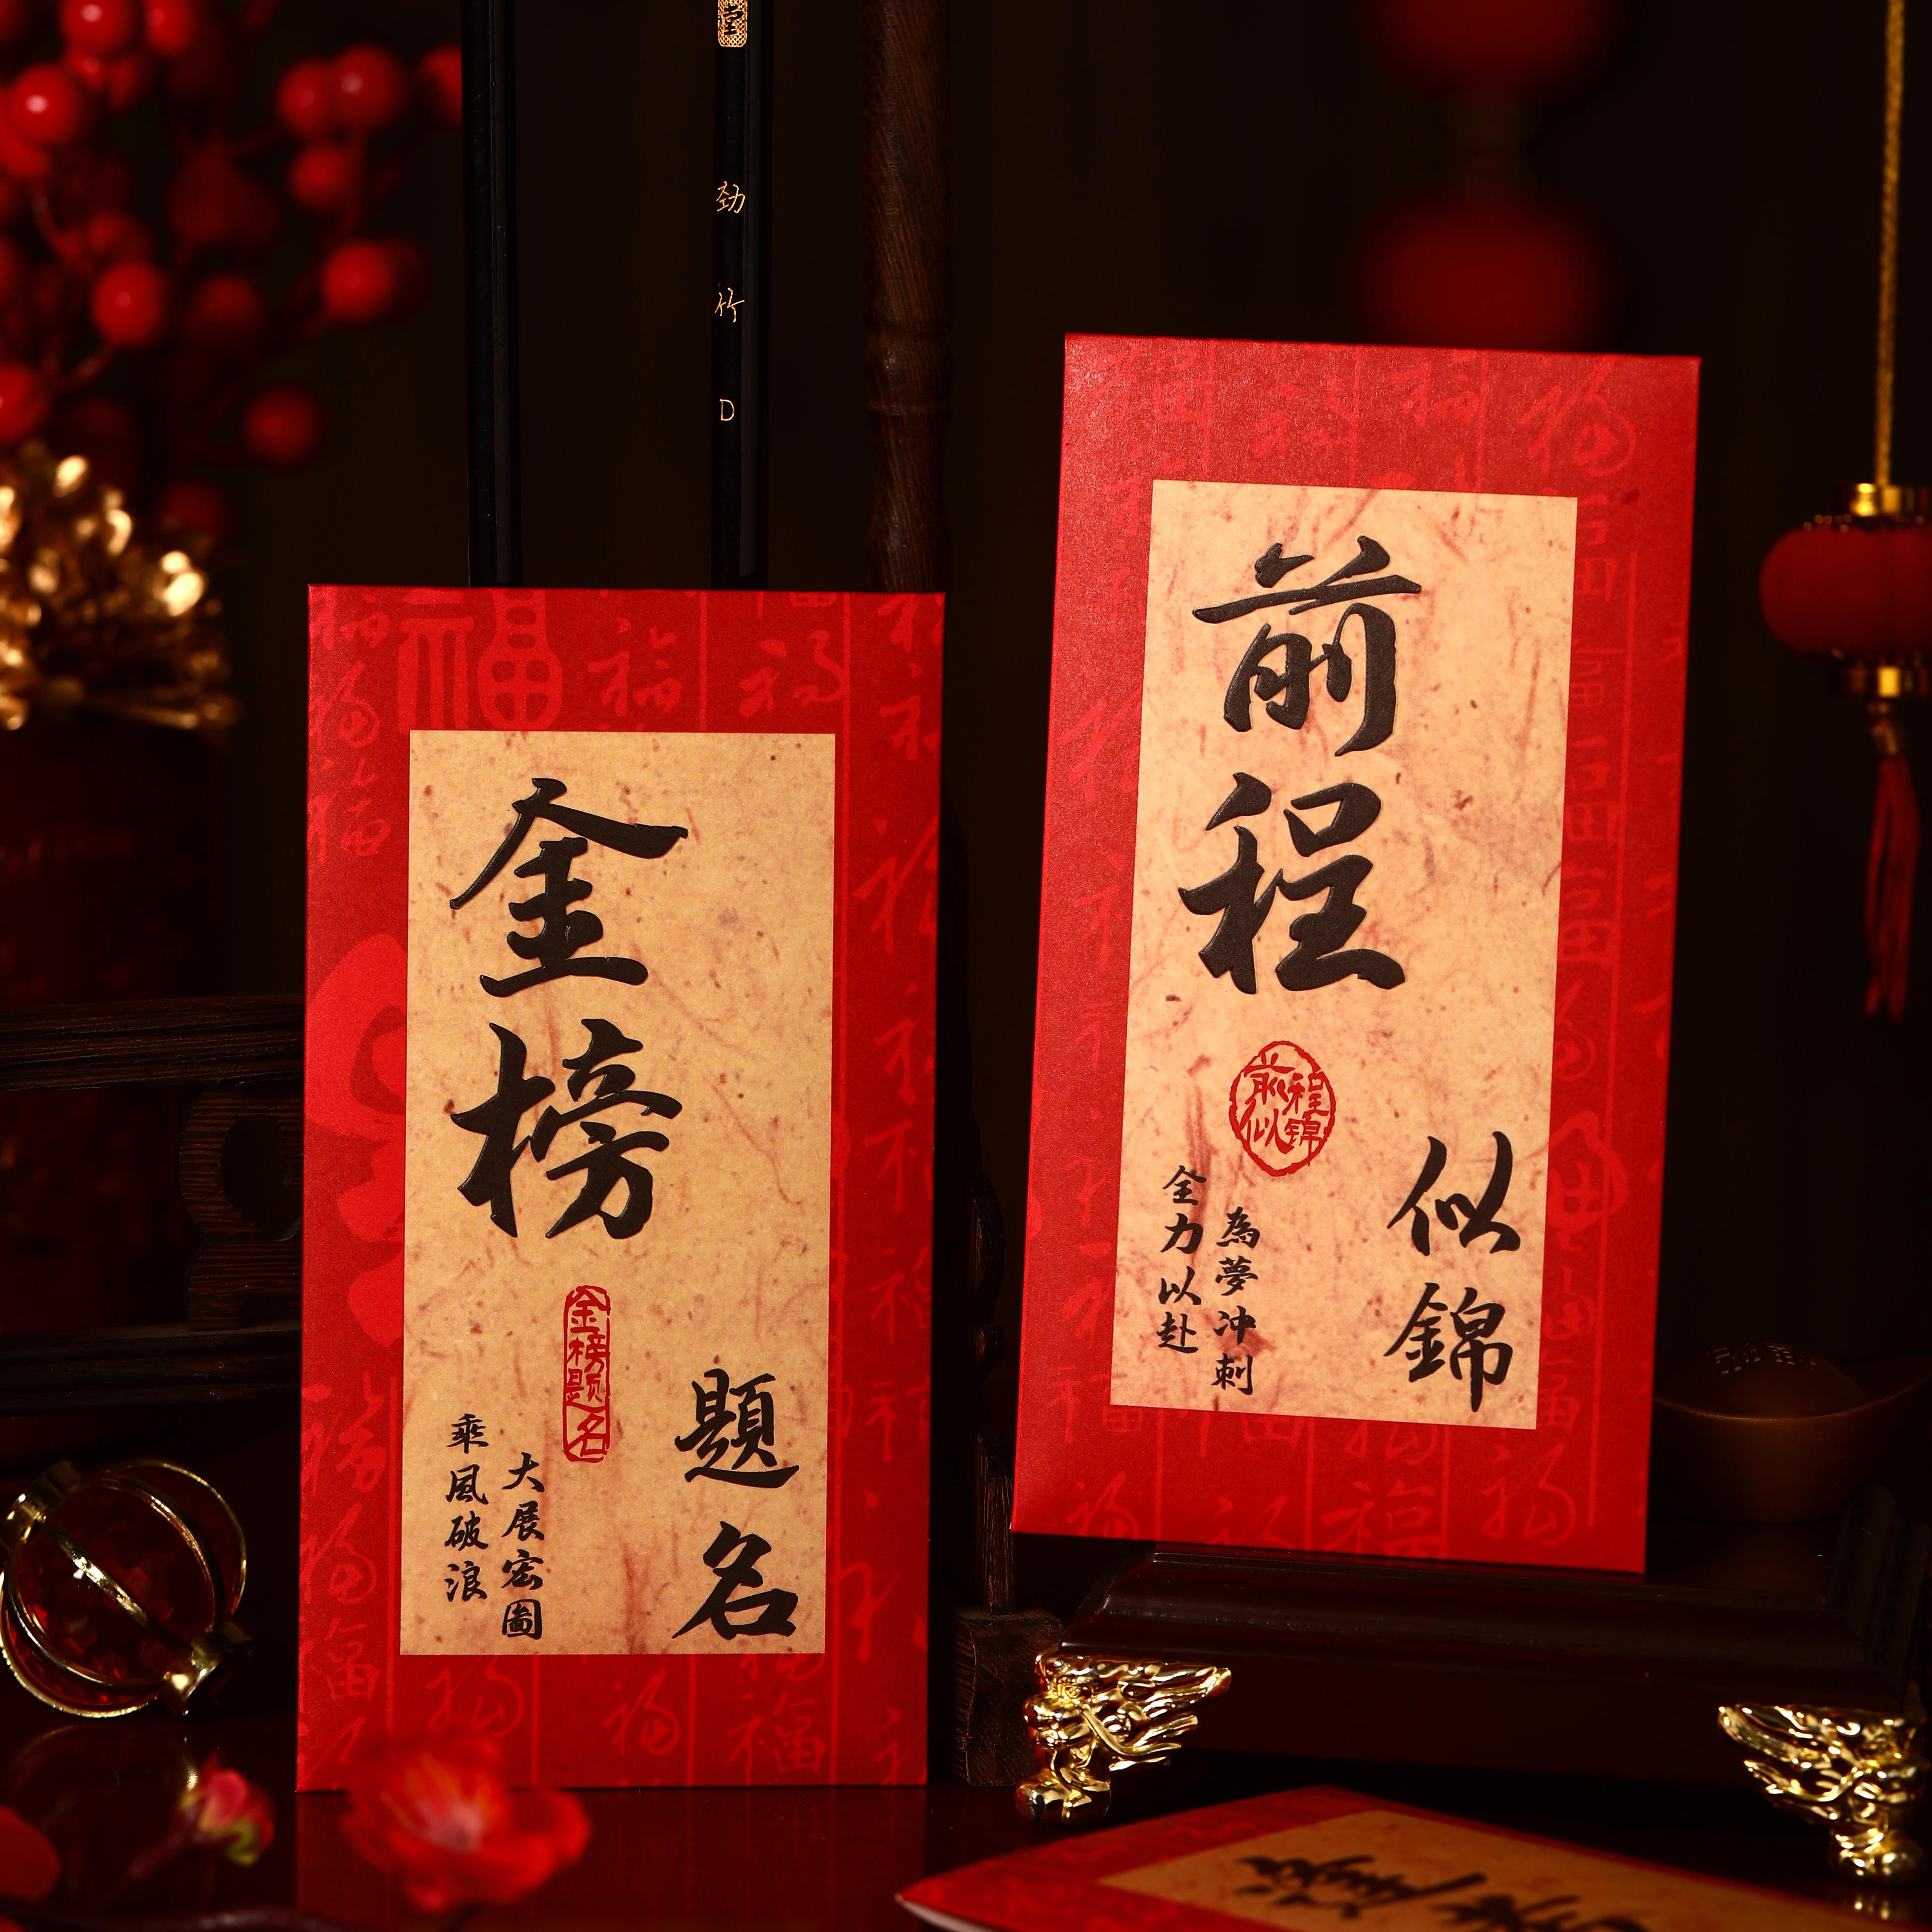 劲竹D
金榜
題名
金榜题名
大展宏圖
乘風破浪
前程
似錦
前程似錦
為夢冲刺
全力以赴
福